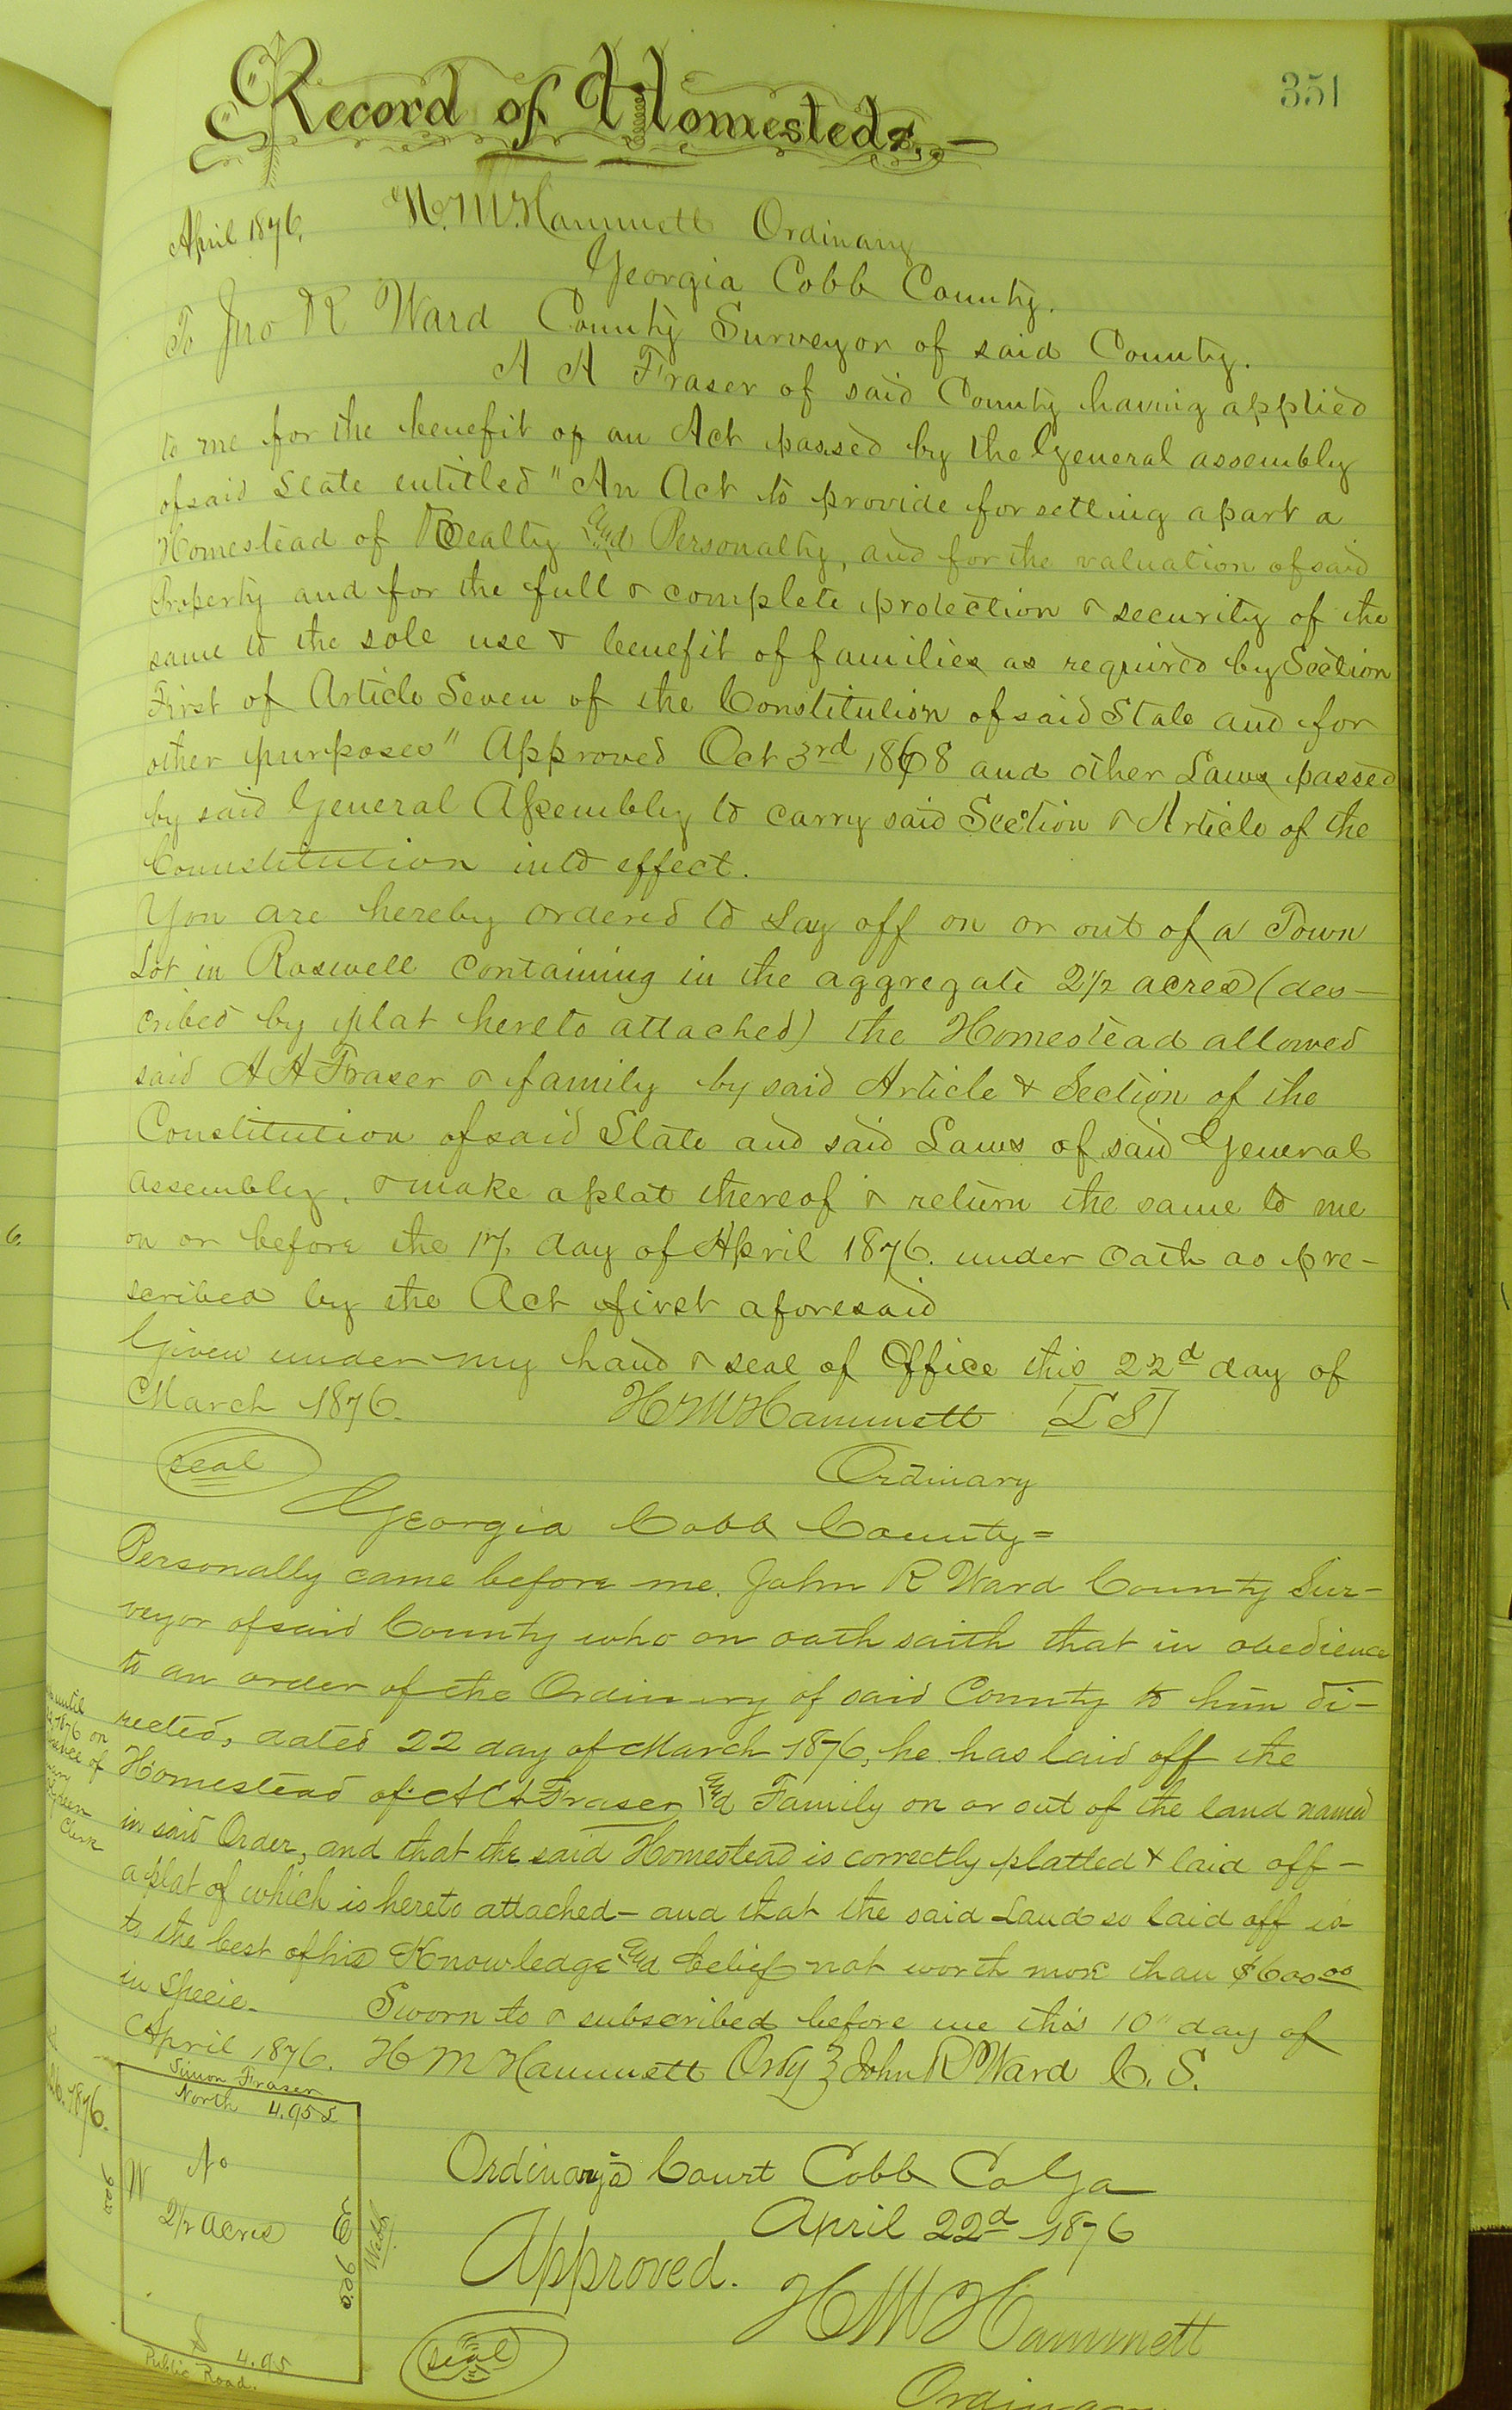 351
Record of Homesteds.—
April 1876.
H. M. Hammett Ordinary
Georgia Cobb County.
To Jno R Ward County Surveyor of said County.
A A Fraser of said County having applied
to me for the benefit of an Act passed by the General assembly
of said State entitled "An Act to provide for setting apart a
Homestead of Realty and Personalty, and for the valuation of said
Property and for the full & complete protection & security of the
same to the sole use & benefit of families as required by Section
First of Article Seven of the Constitution of said State and for
other purposes" Approved Oct 3rd 1868 and other Laws passed
by said General Assembly to carry said Section & Article of the
Connstitution into effect.
You are hereby ordered to Lay off on or out of a Town
Lot in Roswell containing in the aggregate 2 1/2 acres (des—
cribed by plat hereto attached) the Homestead allowed
said A A Fraser & family by said Article & Section of the
Constitution of said State and said Laws of said General
Assembly, & make a plat thereof & return the same to me
on or before the 17. day of April 1876. under oath as pre-
scribed by the Act first aforesaid
Given under my hand & seal of Office this 22d day of
March 1876. H M Hammett [L S]
seal
Ordinary
Georgia Cobb County=
Personally came before me. John R Ward County Sur-
veyor of said County who on oath saith that in obedience
to an order of the Ordinary of said County to him di-
rected, dated 22 day of March 1876, he has laid off the
Homestead of A A Fraser and Family on or out of the land named
in said Order, and that the said Homestead is correctly platted & laid off—
a plat of which is hereto attached— and that the said Land so laid off is
to the best of his Knowledge and belief not worth more than $600 00
in Specie— Sworn to & subscribed before me this 10" day of
April 1876. H M Hammett Ordy } John R Ward C. S.
until
1876 on
of
Clerk
1876.
6.
Simon Fraser
North 4.95
No
W
2 1/2 Acres
E
Webb
S 4.95
Public Road.
Ordinary's Court Cobb Co Ga
April 22d 1876
Approved.
H M Hammett
seal
Ordinary